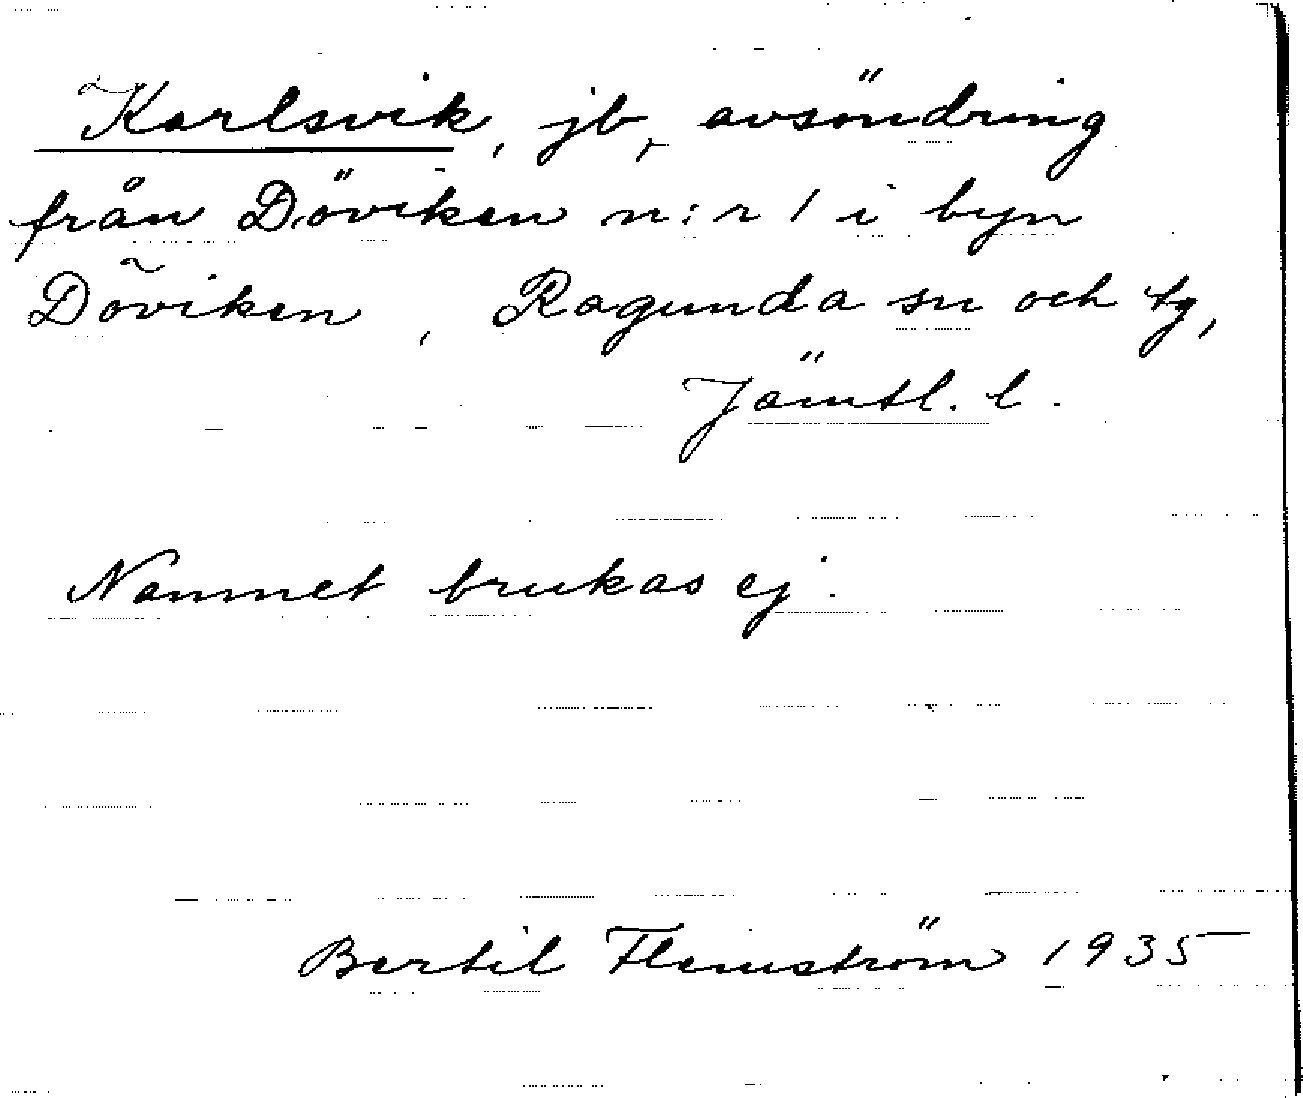 Karlsvik, jb, avsöndring
från Döviken n:r 1 i byn
Döviken, Ragunda sn och tg,
Jämtl. l.
Nammet brukas ej.
Bertil Flemström 1935